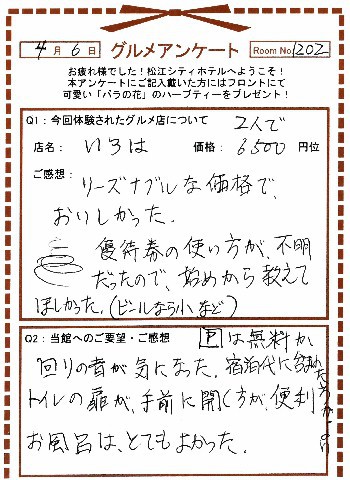 4月6日 グルメアンケート Room No. 1202
お疲れ様でした！松江シティホテルへようこそ！
本アンケートにご記入戴いた方にはフロントにて
可愛い「バラの花」のハーブティーをプレゼント！
Q1：今回体験されたグルメ店について 2人で
店名： いろは 価格： 6500 円位
ご感想： リーズナブルな価格で、
おいしかった。
優待券の使い方が、不明
だったので、始めから教えて
ほしかった。(ビールなら小など)
Q2：当館へのご要望・ご感想 Pは無料か
回りの音が気になった。宿泊代に含まれ
トイレの扉が、手前に開く方が、便利
お風呂は、とてもよかった。